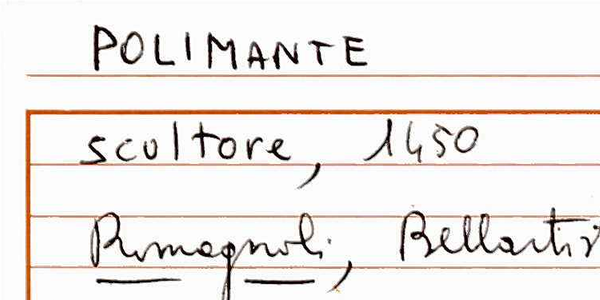 POLIMANTE
scultore, 1450
Romagnoli, Bellartis